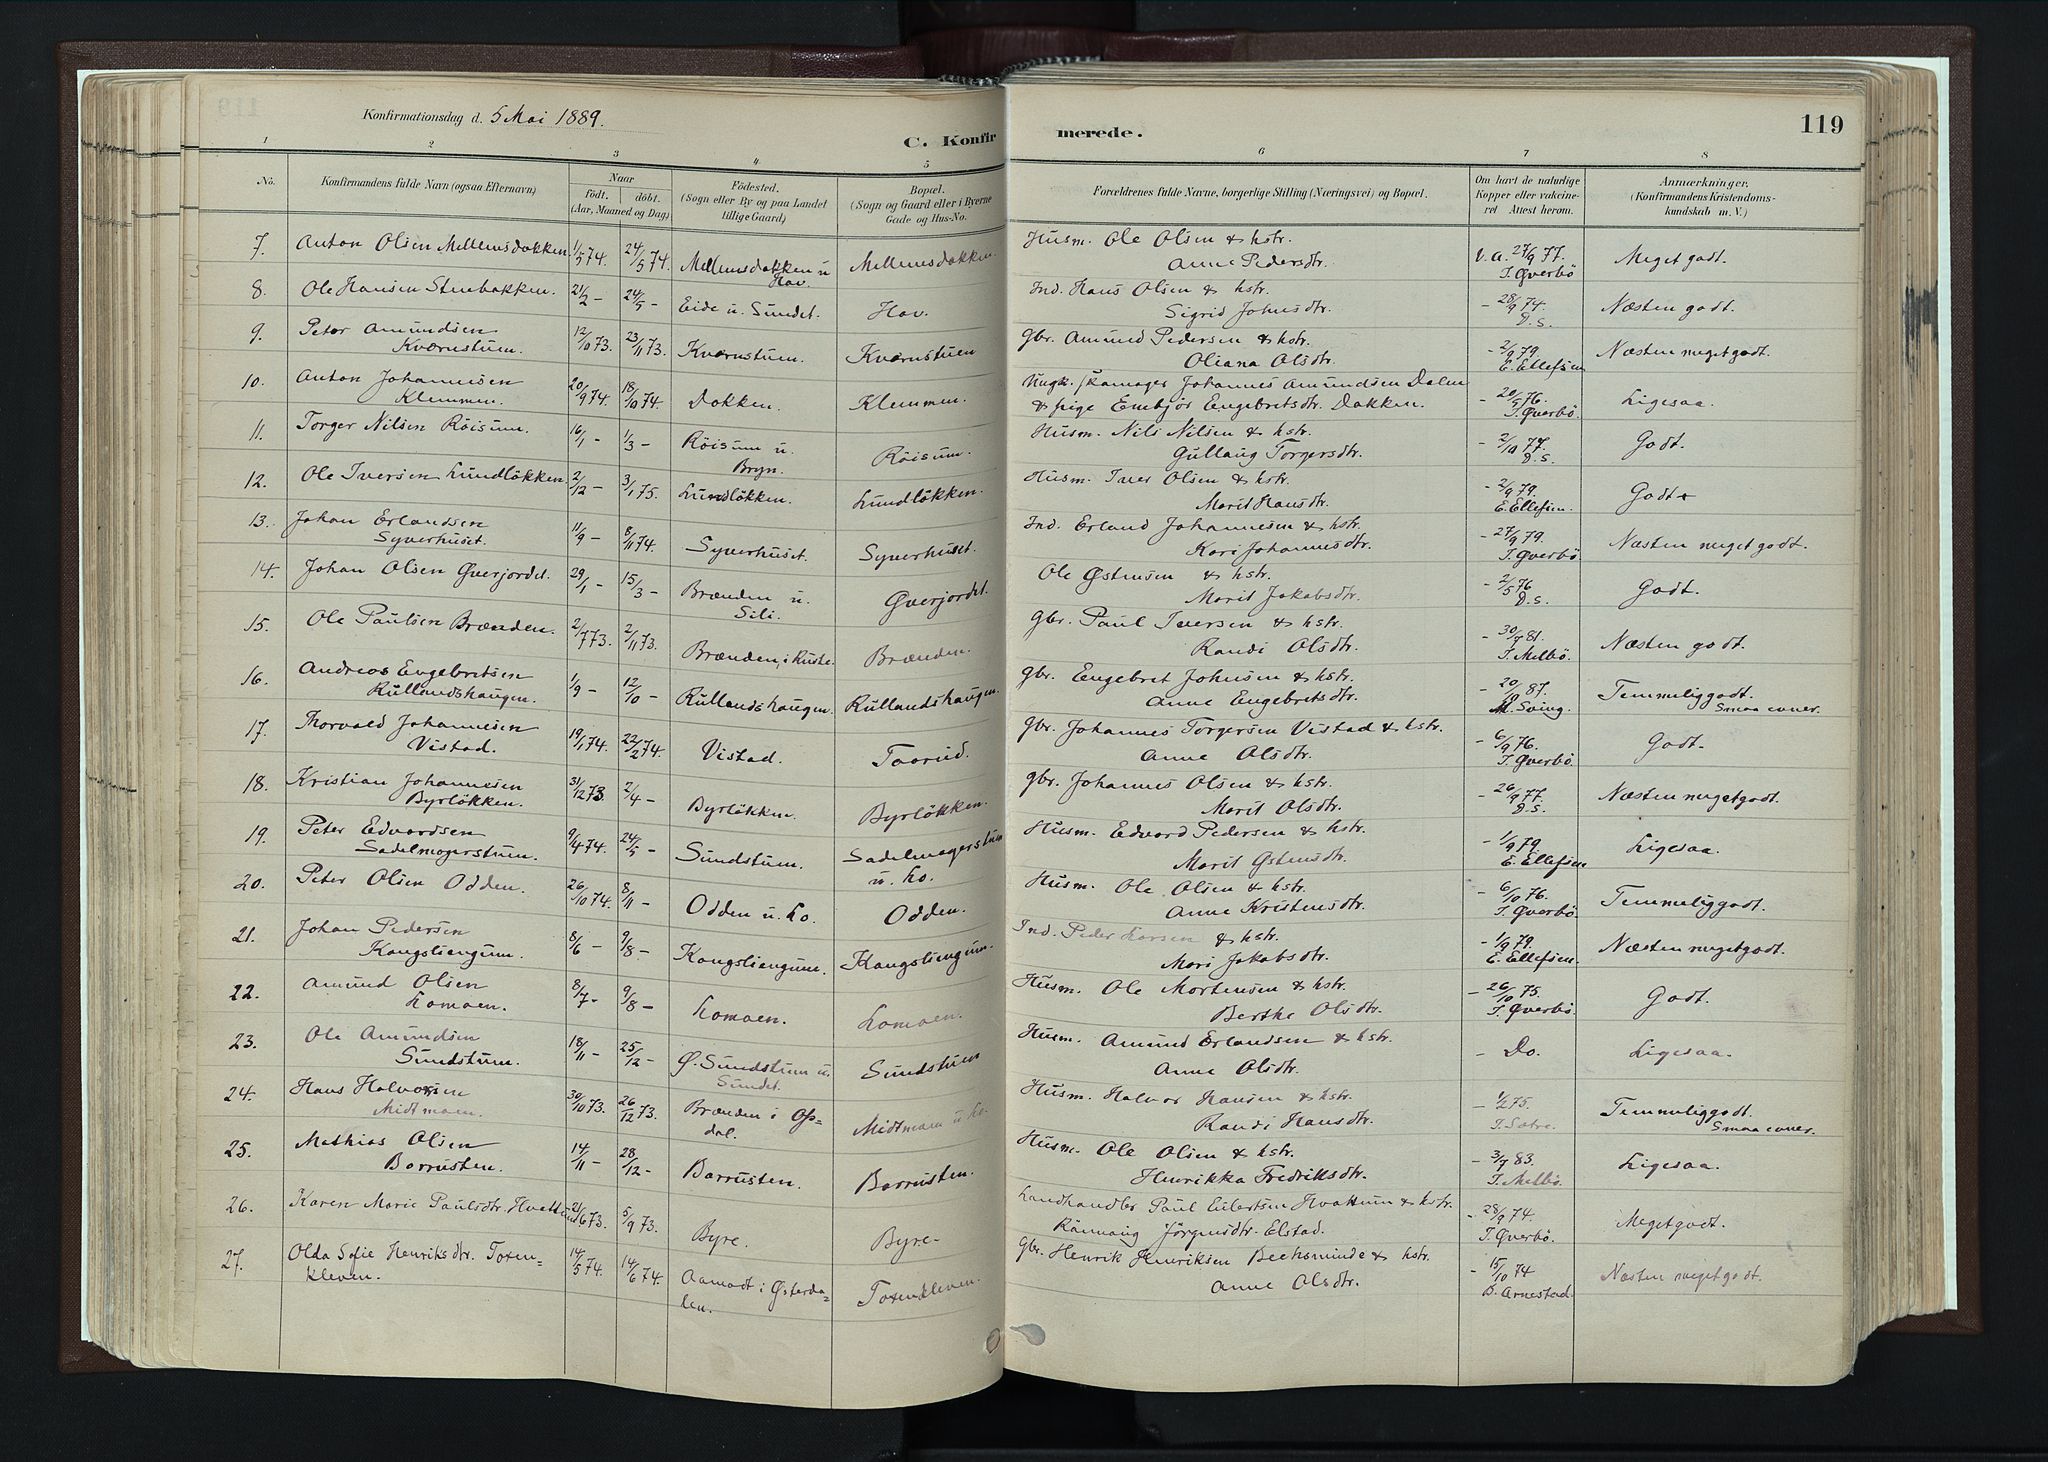 Konfirmationsdag d. 5 Mai 1889.
C. Konfirmerede.
119
1 2 3 4 5 6 7 8
No. Konfirmandens fulde Navn (ogsaa Efternavn) Naar födt. döbt. (Aar, Maaned og Dag) Födested. (Sogn eller By og paa Landet tillige Gaard) Bopæl. (Sogn og Gaard eller i Byerne Gade og Hus-No. Forældrenes fulde Navne, borgerlige Stilling (Næringsvei) og Bopæl. Om havt de naturlige Kopper eller vakcineret Attest herom. Anmærkninger. (Konfirmandens Kristendomskundskab m. V.)
7. Anton Olsen Mellemsdokken. 1/5 74. 24/5 74. Mellemsdokken u Hov. Mellemsdokken. Husm. Ole Olsen & hstr. Anne Pedersdtr. v. a. 27/9 77. T. Øverbö Meget godt.
8. Ole Hansen Stenbakken. 21/2 – 24/5 – Eide u. Sundet. Hov. Ind. Hans Olsen & hstr. Sigrid Johnsdtr. – 28/9 74. D. S. Næsten godt.
9. Peter Amundsen Kværnstuen. 12/10 73. 23/11 73. Kværnstuen. Kværnstuen Gbr. Amund Pedersen & hstr. Oliana Olsdtr. – 2/9 79. E. Ellefsen Næsten meget godt.
10. Anton Johannesen Klemmen. 20/9 74. 18/10 74. Dokken. Klemmen. Ungk. skomager Johannes Amundsen Dalen & pige Embjör Engebretsdtr. Dokken. – 20/5 76. T. Øverbö. Ligesaa.
11. Torger Nilsen Röisum. 16/1 – 1/3 – Röisum u. Bryn. Röisum. Husm. Nils Nilsen & hstr. Gullaug Torgersdtr. – 2/10 77. D. S. Godt.
12. Ole Iversen Lundlökken 2/12 – 3/1 75. Lundlökken. Lundlökken. Husm. Iver Olsen & hstr. Marit Hansdtr. – 2/9 79. E. Ellefsen. Godt
13. Johan Erlandsen Syverhuset. 11/9 – 8/11 74. Syverhuset. Syverhuset. Ind. Erland Johannesen & hstr. Kari Johannesdtr. – 27/9 79. T. Øverbö. Næsten meget godt.
14. Johan Olsen Øverjordet. 29/1 – 15/3 – Brænden u. Sili. Øverjordet. Ole Østensen & hstr. Marit Jakobsdtr. – 2/5 76 D. S. Godt.
15. Ole Paulsen Brænden. 2/7 73. 2/11 73. Brænden, i Ruste. Brænden. Gbr. Paul Iversen & hstr. Randi Olsdtr. – 30/9 81. T. Melbö. Næsten godt.
16. Andreas Engebretsen Rullandshaugen. 1/9 – 12/10 – Rullandshaugen. Rullandshaugen. Gbr. Engebret Johnsen & hstr. Anne Engebretsdtr. – 20/10 87. M. Sving. Temmelig godt. Smaa evner.
17. Thorvald Johannesen Vistad. 19/1 74. 22/2 74. Vistad. Taarud. Gbr. Johannes Torgersen Vistad & hstr. Anne Olsdtr. – 6/9 76. T. Øverbö. Godt.
18. Kristian Johannesen Byrlökken. 31/12 73. 2/4 – Byrlökken. Byrlökken. Gbr. Johannes Olsen & hstr. Marit Olsdtr. – 26/9 77. D. S. Næsten meget godt.
19. Peter Edvardsen Sadelmagerstuen. 9/4 74. 24/5 – Sundstuen. Sadelmagerstuen u. Lo. Husm. Edvard Pedersen & hstr. Marit Østensdtr. – 1/9 79. E. Ellefsen Ligesaa.
20. Peter Olsen Odden. 26/10 74. 8/11 – Odden u. Lo. Odden. Husm. Ole Olsen & hstr. Anne Kristensdtr. – 6/10 76. T. Øverbö. Temmelig godt.
21. Johan Pedersen Kongsliengum. 8/6 – 9/8 – Kongsliengum. Kongsliengum. Ind. Peder Larsen & hstr. Mari Jakobsdtr. – 1/9 79. E. Ellefsen. Næsten meget godt.
22. Amund Olsen Lomoen. 8/7 – 9/8 – Lomoen. Lomoen. Husm. Ole Mortensen & hstr. Berthe Olsdtr. – 26/10 75. T. Øverbö. Godt.
23. Ole Amundsen Sundstuen. 18/11 – 25/12 – Ø. Sundstuen u. Sundet. Sundstuen Husm. Amund Erlandsen & hstr. Anne Olsdtr. – Do. Ligesaa.
24. Hans Halvorsen Midtmoen. 30/10 73. 26/12 73. Brænden i Opdal. Midtmoen u Lo. Husm. Halvor Hansen & hstr. Randi Hansdtr. – 1/2 75. T. Sætre. Temmelig godt. Smaa evner.
25. Mathias Olsen Borrusten. 14/11 – 28/12 – Borrusten. Borrusten. Husm. Ole Olsen & hstr. Henrikka Fredriksdtr. – 3/7 83. T. Melbö. Ligesaa.
26. Karen Marie Paulsdtr. Hvattum 21/6 73. 5/9 73. Byre. Byre – Landhandler Paul Eilertsen Hvattum & hstr. Rönnaug Jörgensdtr. Elstad. – 28/9 74. T. Øverbö. Meget godt.
27. Olda Sofie Henriksdtr. Toxenkleven. 14/5 74. 14/6 74. Aamodt i Østerdalen. Toxenkleven. Gbr. Henrik Henriksen Bechsminde & hstr. Anne Olsdtr. – 15/10 74 B. Arnestad. Næsten meget godt.